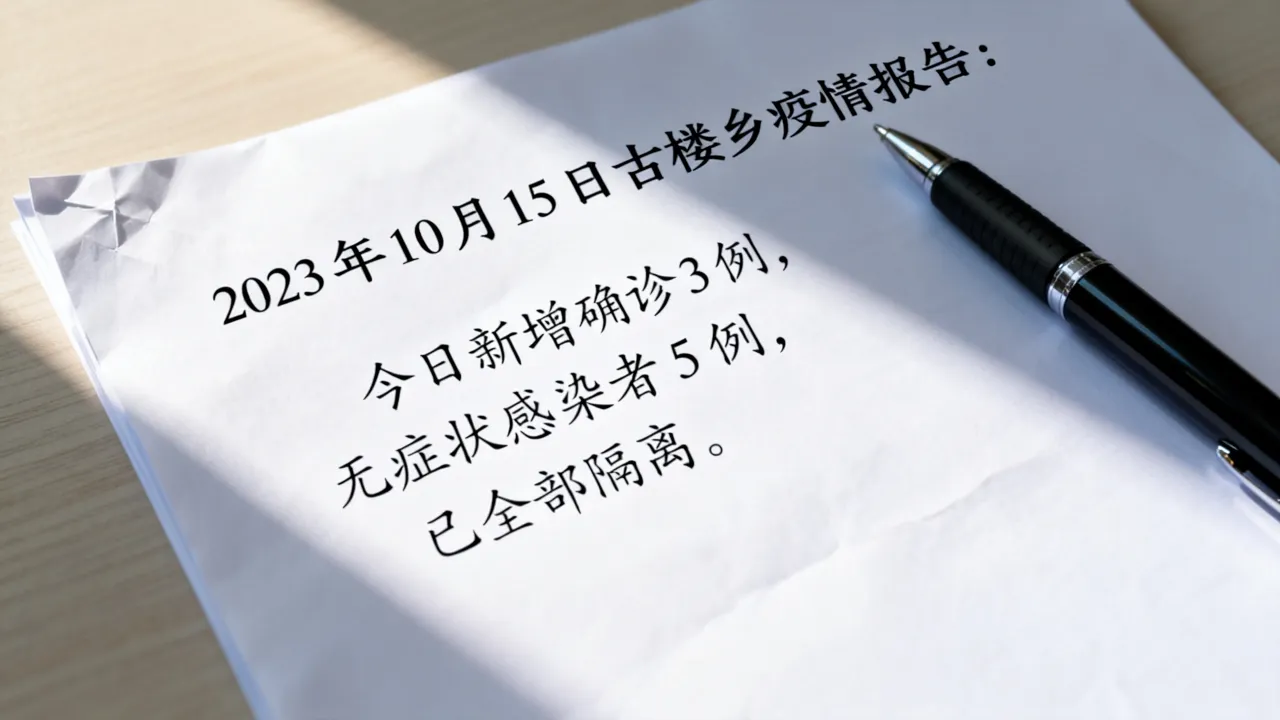 2023年10月15日古楼乡疫情报告：
今日新增确诊3例，
无症状感染者5例，
已全部隔离。